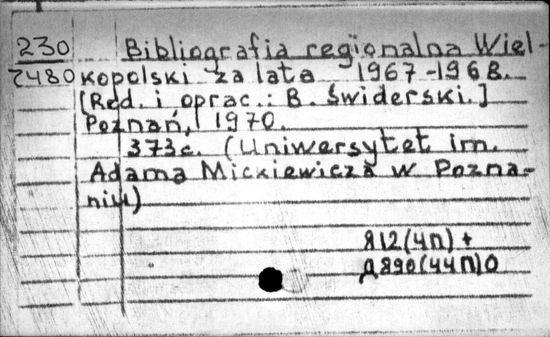 230 Bibliografia regionalna Wiel-
7480 kopolski za lata 1967-1968.
[Red. i oprac.: B. Świderski.]
Poznań, 1970.
373c. (Uniwersytet im.
Adama Mickiewicza w Pozna-
niu)
Я12(4П)+
Д890(44П)0